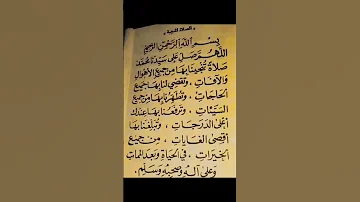 الصلاة المنجية
بسم الله الرحمن الرحيم
اللهم صل على سيدنا محمد
صلاة تنجينا بها من جميع الأهوال
والآفات، وتقضي لنا بها جميع
الحاجات، وتطهرنا بها من جميع
السيئات، وترفعنا بها عندك
أعلى الدرجات، وتبلغنا بها
أقصى الغايات، من جميع
الخيرات، في الحياة وبعد الممات
وعلى آله وصحبه وسلم.